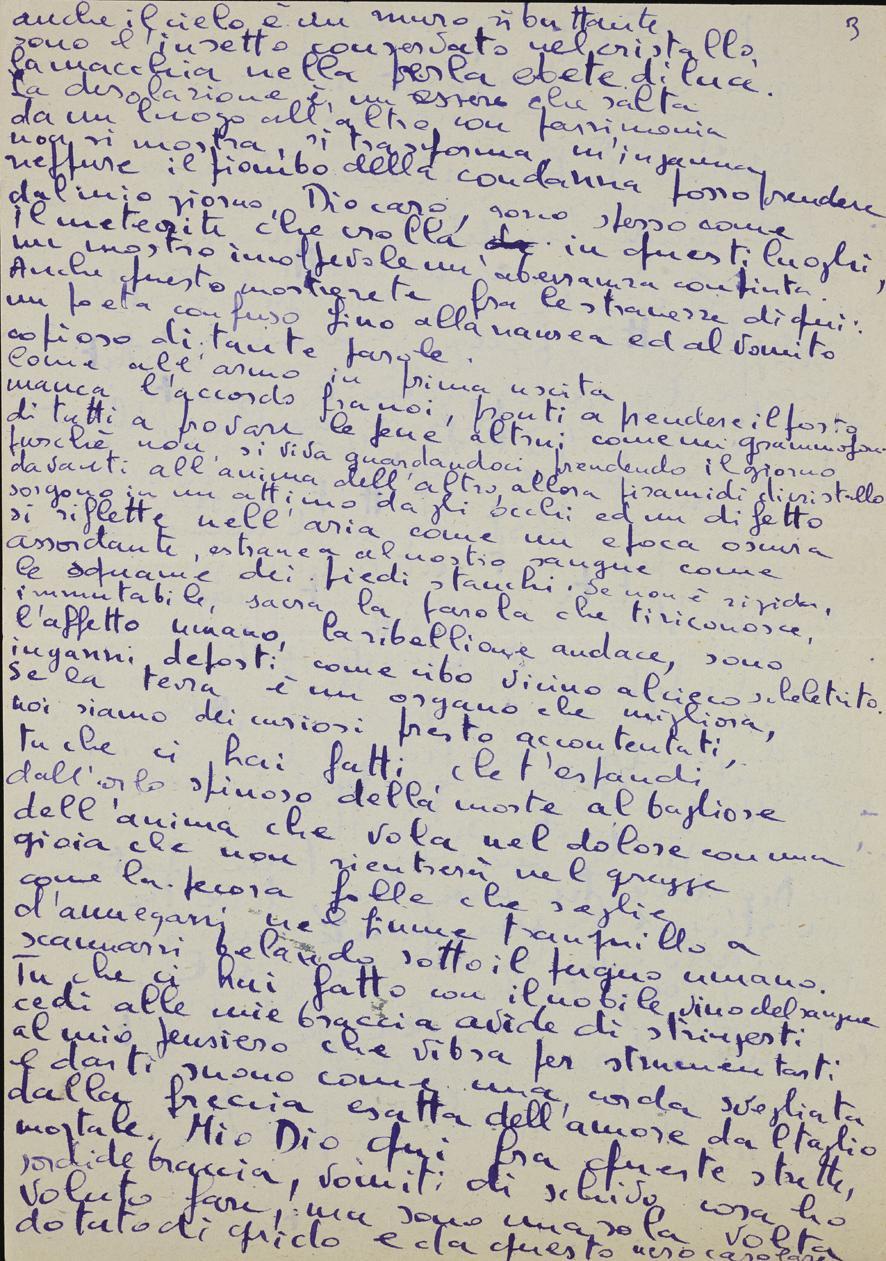 3
anche il cielo è un muro ributtante
sono l'insetto conservato nel cristallo,
la macchia nella perla ebete di luce.
La desolazione è un essere che salta
da un luogo all'altro con parsimonia
non si mostra, si trasforma, m'inganna,
neppure il piombo della condanna posso prendere
dal mio giorno, Dio caro, sono spesso come
il meteorite che crolla in questi luoghi,
un mostro incolpevole un'aberranza contenta.
Anche questo mostrerete fra le stranezze di qui:
un poeta confuso fino alla nausea ed al vomito
copioso di tante parole.
Come all'armo in prima uscita
manca l'accordo fra noi, pronti a prendere il posto
di tutti a provare le pene altrui come un grammofono
purché non si viva guardandoci, prendendo il giorno
davanti all'anima dell'altro, allora piramidi di cristallo
sorgono in un attimo dagli occhi ed un difetto
si riflette nell'aria come un epoca oscura
assordante, estranea al nostro sangue come
le squame dei piedi stanchi. Se non è rigida,
immutabile, sacra la parola che ti riconosce,
l'affetto umano, la ribellione audace, sono
inganni deposti come cibo vicino al cieco scheletrito.
Se la terra è un organo che migliora,
noi siamo dei curiosi presto accontentati,
tu che ci hai fatti che t'espandi
dall'orlo spinoso della morte al bagliore
dell'anima che vola nel dolore con una
gioia che non rientrerà nel gregge
come la pecora folle che sceglie
d'annegarsi nel fiume tranquillo a
scannarsi belando sotto il pugno umano.
Tu che ci hai fatto con il nobile vino del sangue
cedi alle mie braccia avide di stringerti
al mio pensiero che vibra per strumentarti
e darti suono come una corda svegliata
dalla freccia esatta dell'amore da l taglio
mortale. Mio Dio qui fra queste strette,
sordide braccia, vomiti di schivo, cosa ho
voluto fare, ma sono una sola volta
dotato di grido e da questo nero